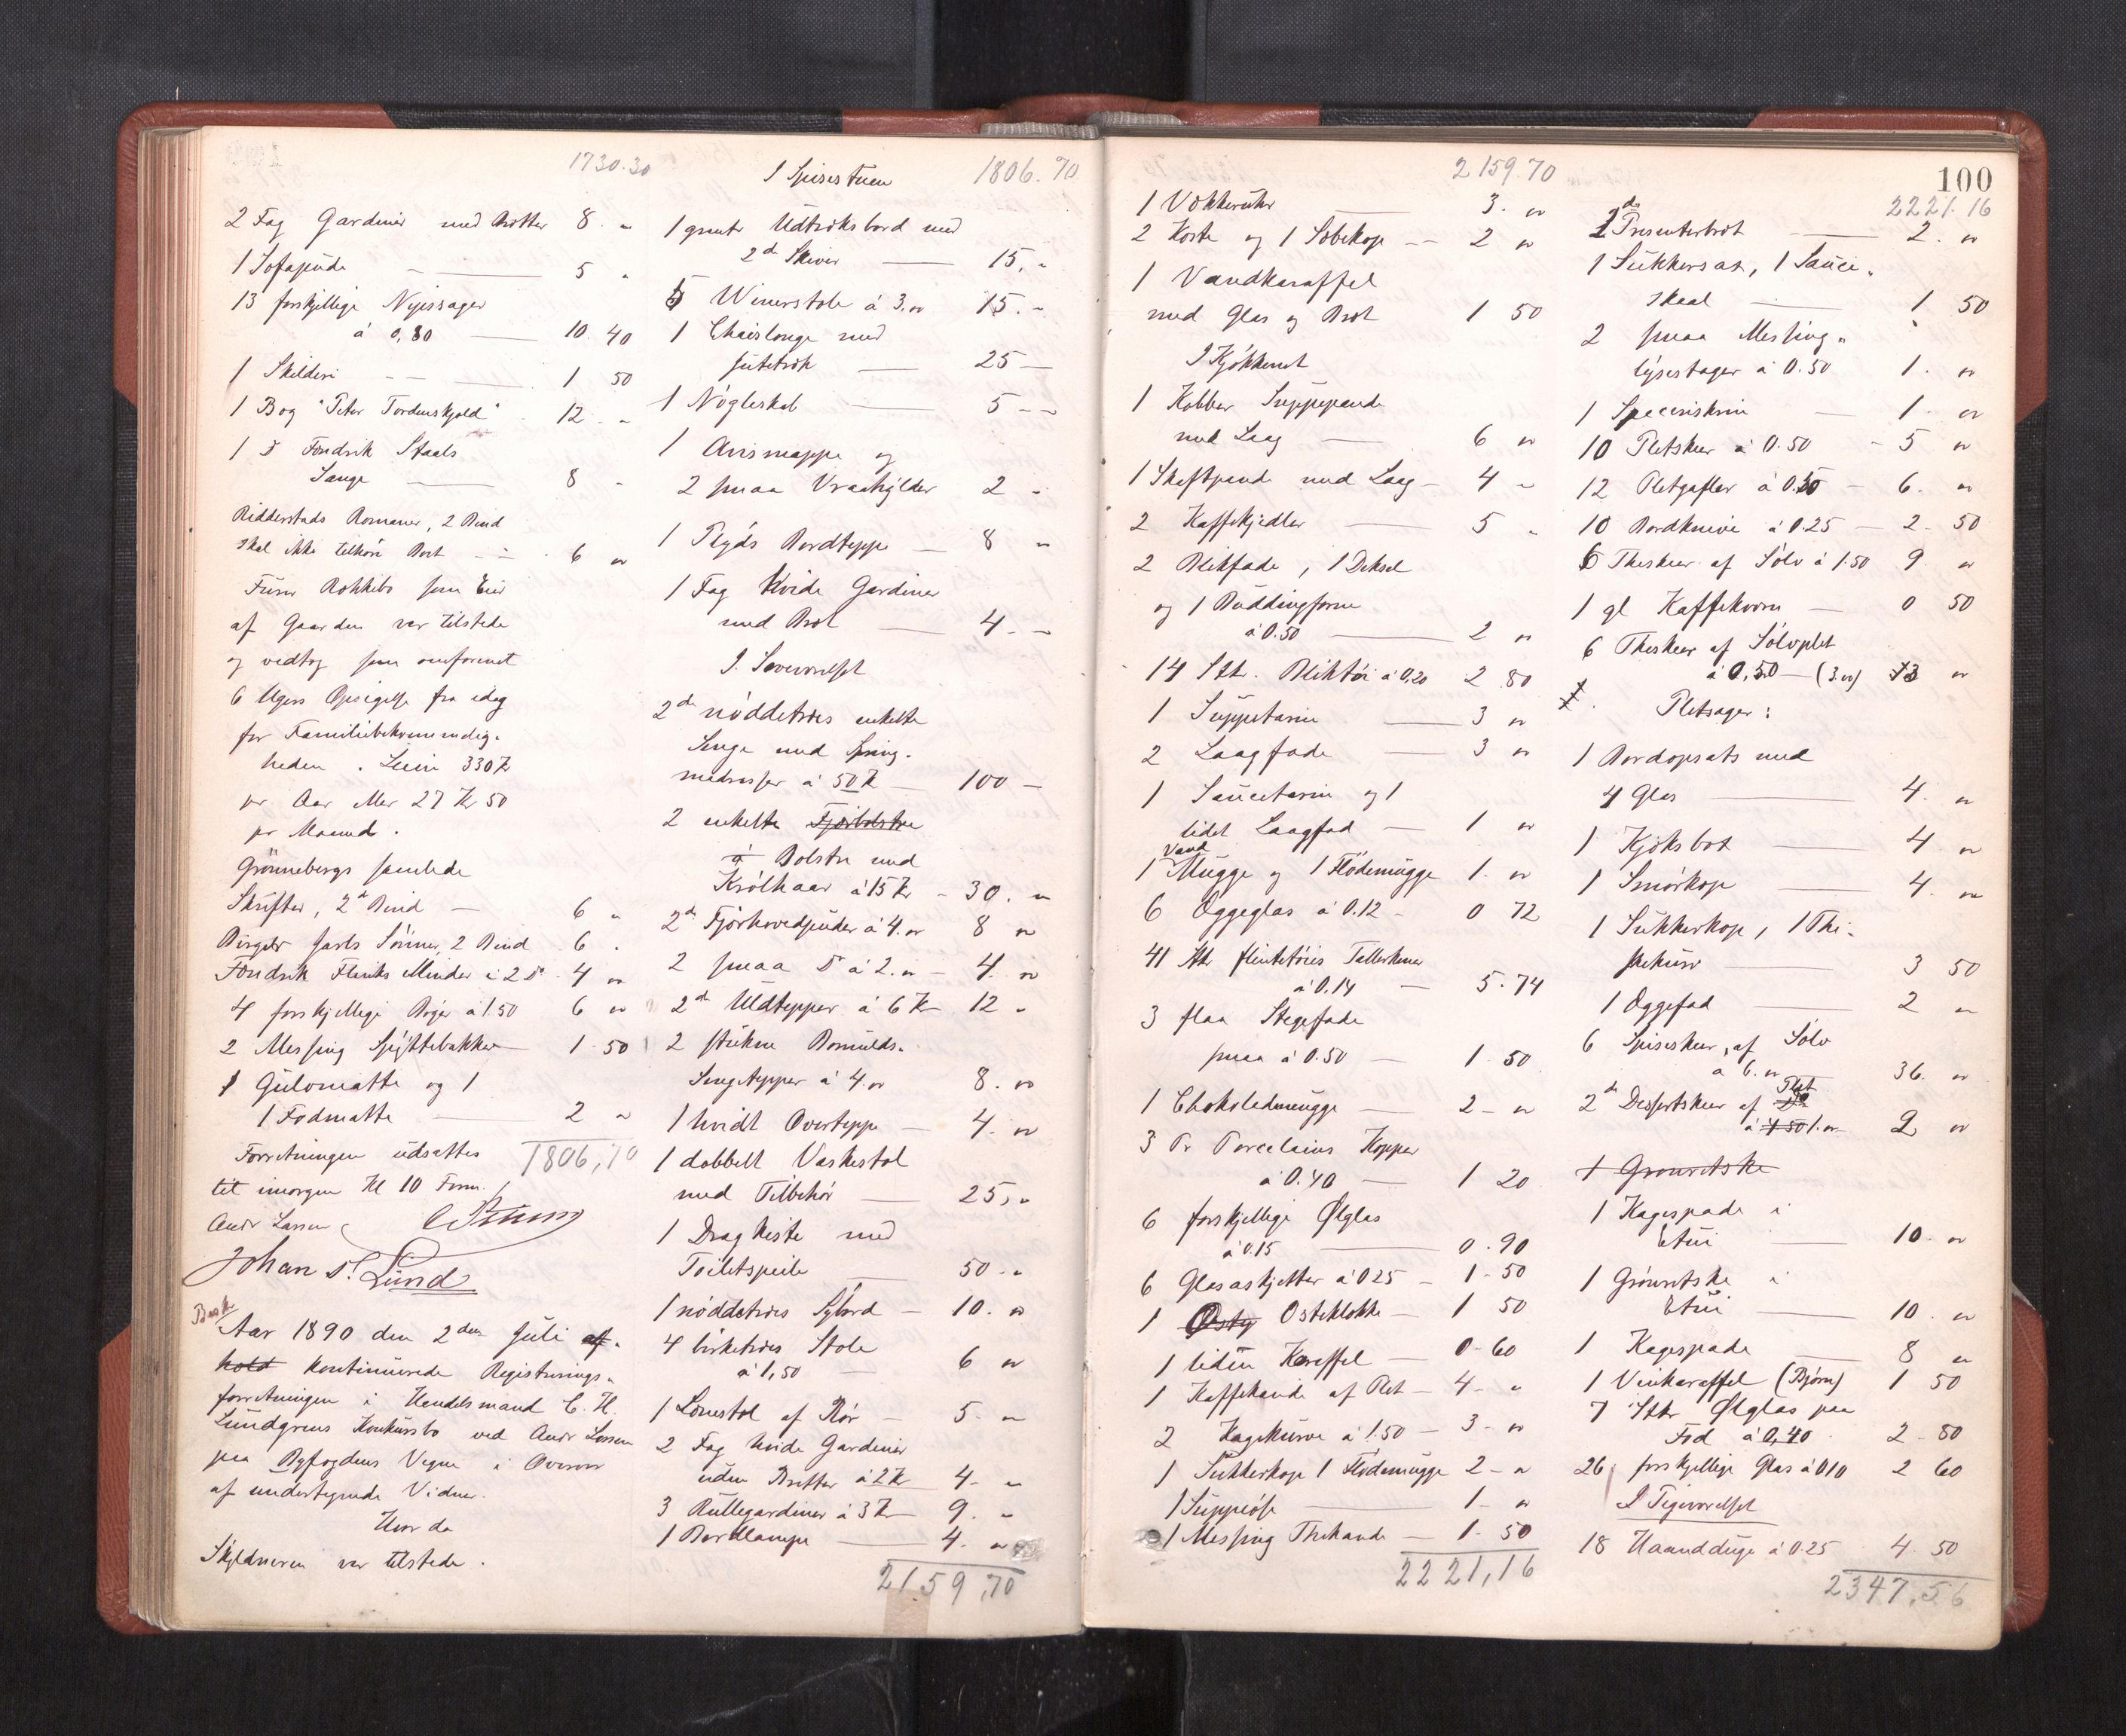 1730.30
2 Fag Gardiner med Bretter 8 "
1 Sofapude 5 "
13 forskjellige Nipssager
à 0,80 10 40
1 Skilderi 1 50
1 Bog "Peter Tordenskjold" 12 "
1 Do Fendrik Staals
Sange 8 "
Ridderstads Romaner, 2 Bind
skal ikke tilhøre Boet 6 "
Furer Rokkebo som Eier
af Gaarden var tilstede
og vedtog som omforenet
6 Ugers Opsigelse fra idag
for Familiebekvemmelig-
heden. Leien 330 Kr
pr Aar eller 27 Kr 50
pr Maaned.
Grønnebergs samlede
Skrifter, 2de Bind 6 "
Birger Jarls Sönner, 2 Bind 6 "
Fendrik Flinks Minder i 2 Do 4 "
4 forskjellige Bøger à 1.50 6 "
2 Messing Spyttebakker 1 50
1 Gulvmatte og 1
1 Fodmatte 2 "
Forretningen udsattes 1806,70
til imorgen Kl 10 Form.
Andr Larsen
Johan S. Lund
Aar 1890 den 2den Juli af-
hold kontinuerede Registrerings-
forretningen i Handelsmand C. H.
Lundgrens Konkursbo ved Andr Larsen
paa Byfogdens Vegne i Overvær
af undertegnede Vidner.
Hvor da
Skyldneren var tilstede.
I Spisestuen 1806.70
1 grønt Udtræksbord med
2de Skiver 15,"
5 Wienerstole à 3." 15."
1 Chaislonge med
Jutetræk 25
1 Nøgleskab 5
1 Avismappe og
2 smaa Vraahylder 2 "
1 Plyds Bordteppe 8 "
1 Fag Hvide Gardiner
med Bret 4
I Soveværelset
2de nøddetræes enkelte
Senge med Spring-
madrasser à 50 Kr 100
2 enkelte Fjærbolstre
à Bolstre med
Krølhaar à 15 Kr 30."
2de Fjærhovedpuder à 4." 8 "
2 smaa Do à 2." 4. "
2de Uldtepper à 6 Kr 12 "
2 strikne Bomulds-
Sengetepper à 4." 8. "
1 hvidt Overteppe 4. "
1 dobbelt Vaskestol
med Tilbehør 25,"
1 Dragkiste med
Toiletspeile 50."
1 nøddetræes Sybord 10. "
4 birketræes Stole
à 1,50 6 "
1 Lænestol af Rør 5 "
2 Fag hvide Gardiner
uden Bretter à 2 Kr 4 "
3 Rullegardiner à 3 Kr 9. "
1 Bordlampe 4. "
2159,70
2159.70
1 Vækkeruhr 3. "
2 Koste og 1 Sobekop 2 "
1 Vandkaraffel
med Glas og Bret 1 50
I Kjøkkenet
1 Kobber Suppepande
med Laag 6 "
1 Skaftpande med Laag 4 "
2 Kaffekjedler 5 "
2 Blikfade, 1 Deksel
og 1 Buddingform
à 0.50 2 "
14 Stkr. Bliktøi à 0,20 2 80
1 Suppeterin 3 "
2 Laagfade 3 "
1 Sauceterin og 1
lidet Laagfad 1 "
Vand
1 Mugge og 1 Flødemugge 1. "
6 Æggeglas à 0.12 0 72
41 Stk flintetøies Tallerkener
à 0.14 5.74
3 flaa Stegefade
smaa à 0.50 1 50
1 Chokolademugge 2 "
3 Pr Porcelains Kopper
à 0.40 1 20
6 forskjellige Ølglas
à 0.15 0.90
6 Glasaskjetter à 025 1 50
1 Osty Osteklokke 1 50
1 liden Karaffel 0 60
1 Kaffekande af Plet 4 "
2 Kagekurve à 1.50 3 "
1 Sukkerkop 1 Flødemugge 2 "
1 Suppeøse 1 "
1 Messing Thekande 1.50
2221,16
100
2221.16
2de Presenterbret 2. "
1 Sukkersax, 1 Sauce-
skaal 1 50
2 smaa Messing-
lysestager à 0.50 1. "
1 Speceriskrin 1. "
10 Pletskeer à 0.50 5 "
12 Pletgafler à 0.50 6. "
10 Bordknive à 0.25 2 50
6 Theskeer af Sølv à 1.50 9 "
1 gl Kaffekværn 0 50
6 Theskeer af Sølvplet
à 0,50 (3 ") 3 "
Pletsager:
1 Bordopsats med
4 Glas 4. "
1 Kjeksbox 4 "
1 Smørkop 4. "
1 Sukkerkop, 1 The-
skekurv 3 50
1 Æggefad 2 "
6 Spiseskeer, af Sølv
à 6." 36. "
2de Dessertskeer af Do Plet
à 1 50 1." 2 "
1 Grønvetske
1 Kagespade i
Etui 10. "
1 Grønvetske i
Etui 10. "
1 Kagespade 8 "
1 Vinkaraffel (Bjørn) 1 50
7 Stkr Ølglas paa
Fod à 0,40 2 80
26 forskjellige Glas à 010 2 60
I Pigeværelset
18 Haandduge à 0.25 4 50
2347,56